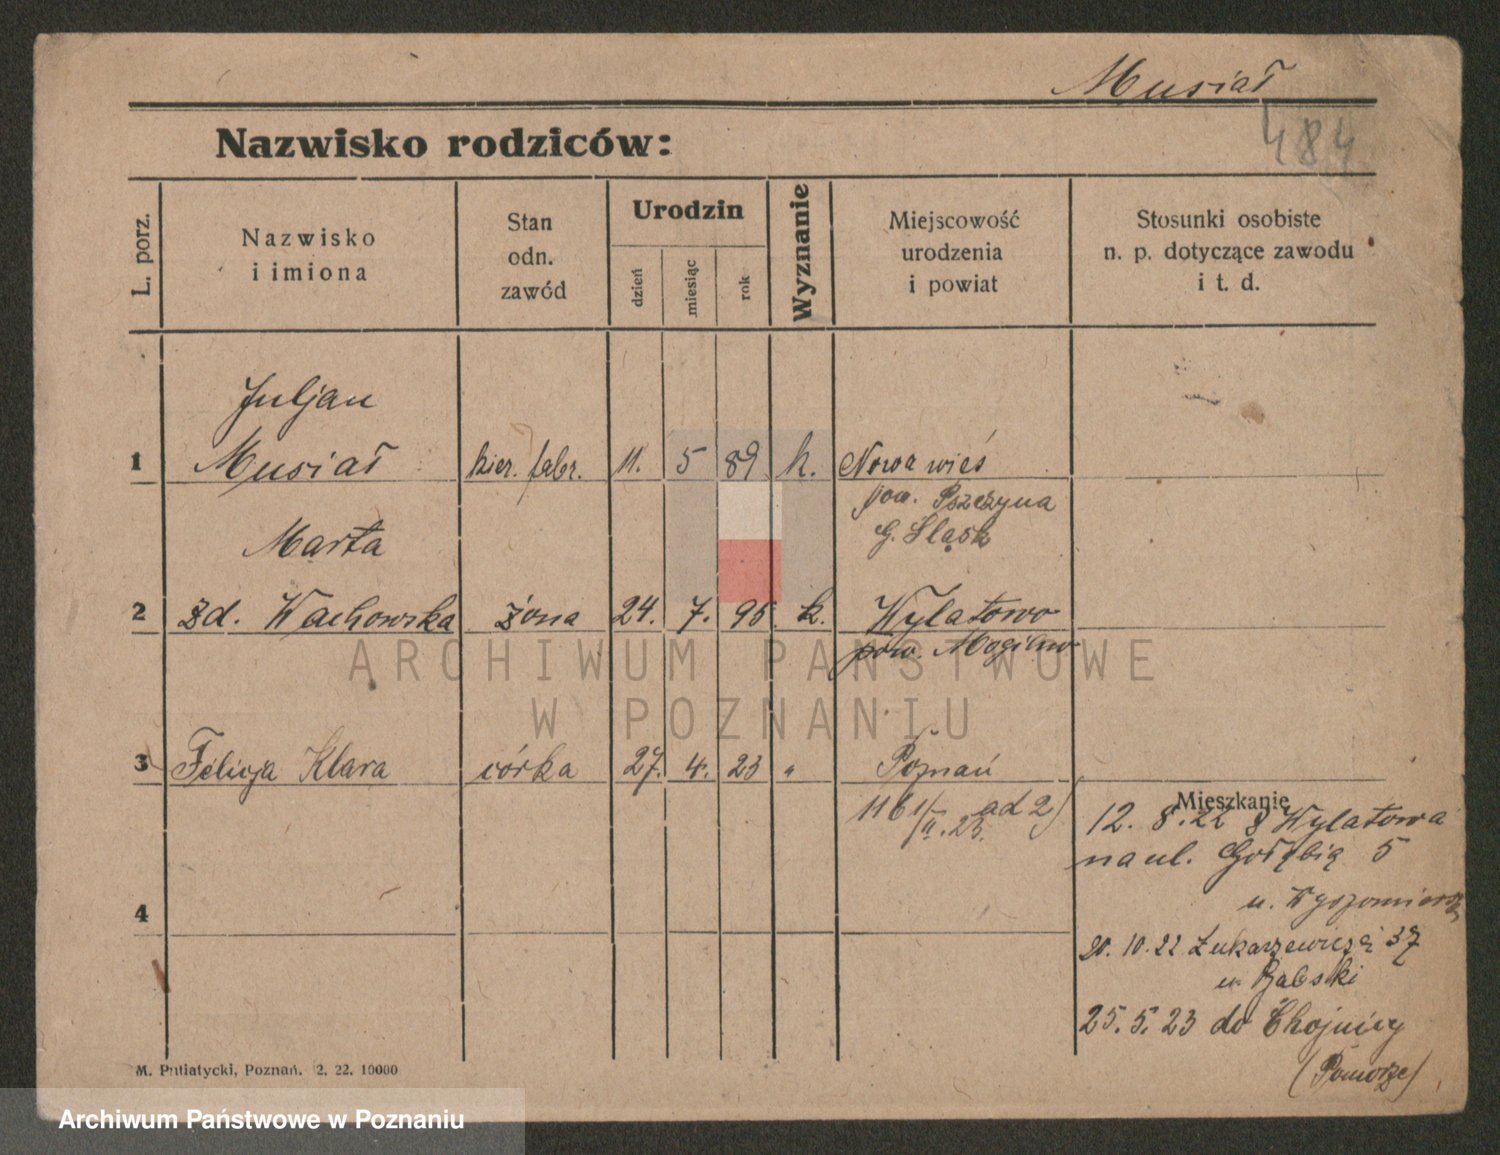 Musiał
484
Nazwisko rodziców:
L. porz.
Nazwisko
i imiona
Stan
odn.
zawód
Urodzin
dzień
miesiąc
rok
Wyznanie
Miejscowość
urodzenia
i powiat
Stosunki osobiste
n. p. dotyczące zawodu
i t. d.
Juljan
1 Musiał kier. fabr. 11. 5 89 k. Nowa wieś
pow. Pszczyna
G. Śląsk
Marta
2 zd. Wachowska żona 24. 7. 95 k. Wylatowo
pow. Mogilno
ARCHIWUM PAŃSTWOWE
W POZNANIU
3 Felicja Klara córka 27. 4. 23 " Poznań
1161/II. 23. ad 2)
Mieszkanie
12. 8. 22 z Wylatowa
na ul. Gołębią 5
u.
4
20. 10. 22 Łukaszewiczą 37
u. Babski
25. 5. 23 do Chojnicy
(Pomorze)
M. Putiatycki, Poznań. 2. 22. 10000
Archiwum Państwowe w Poznaniu